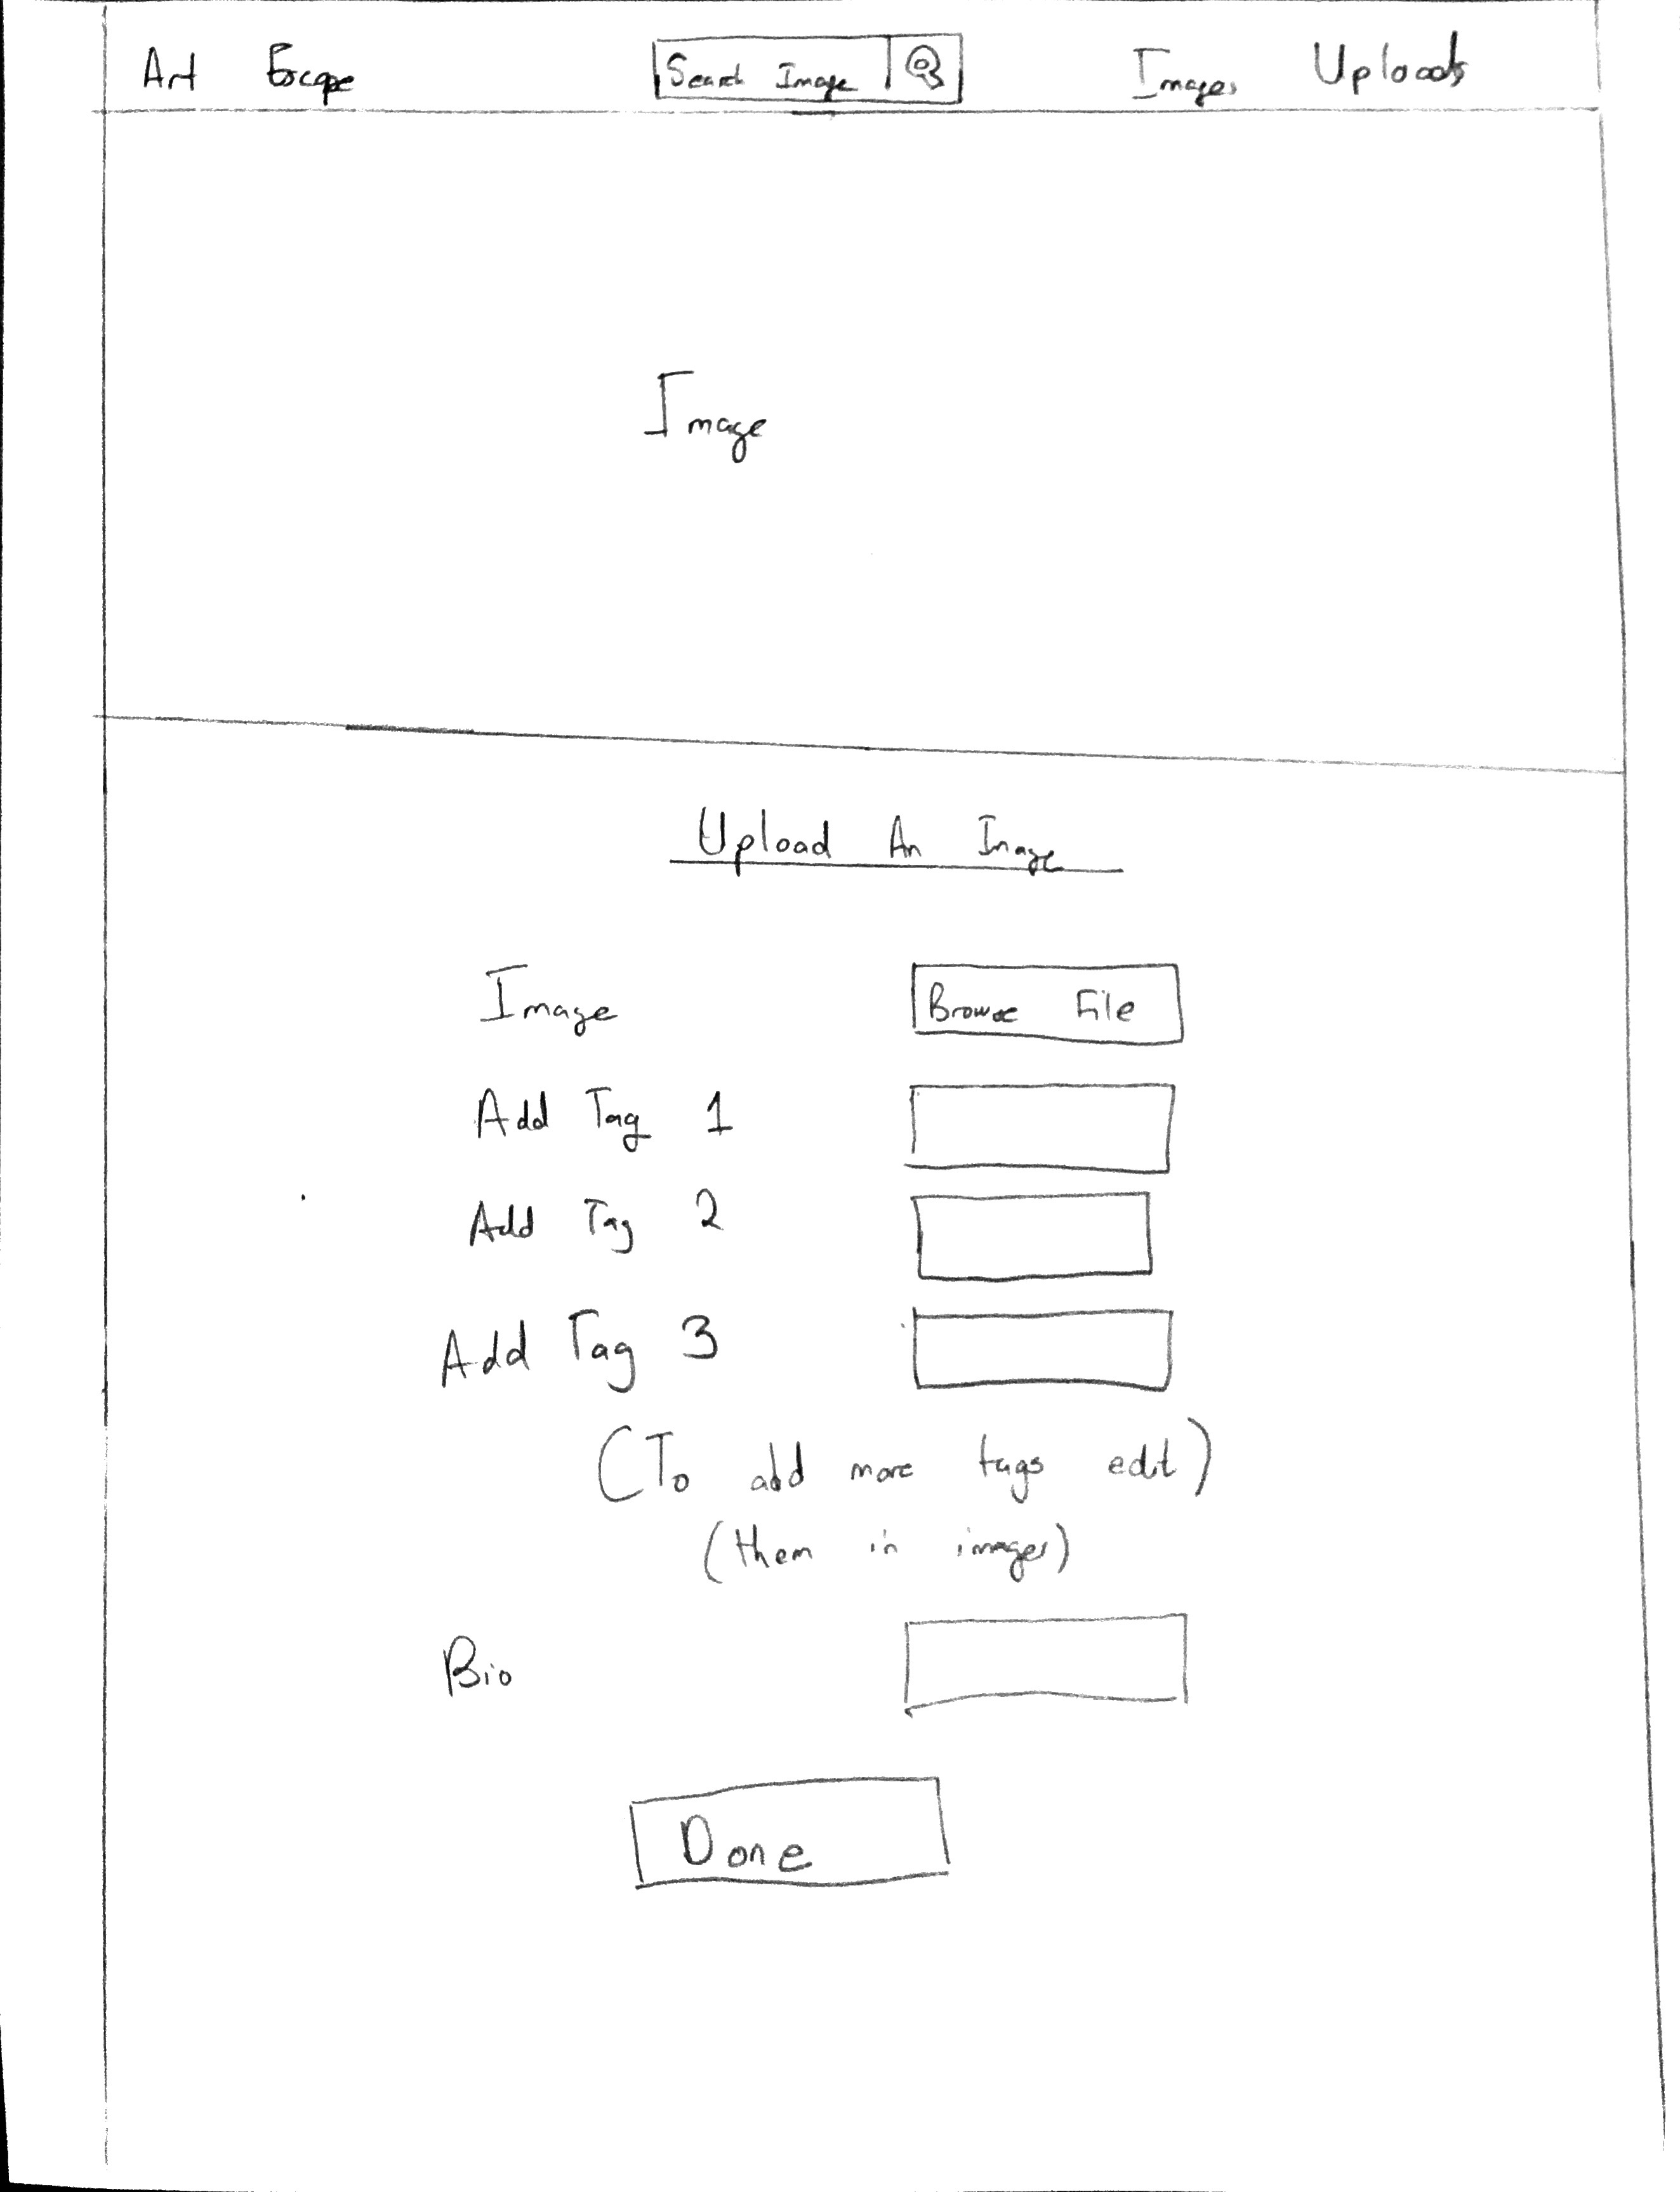 Art Escape Search Image Images Uploads
Image
Upload An Image
Image Browse File
Add Tag 1
Add Tag 2
Add Tag 3
(To add more tags edit)
(them in images)
Bio
Done